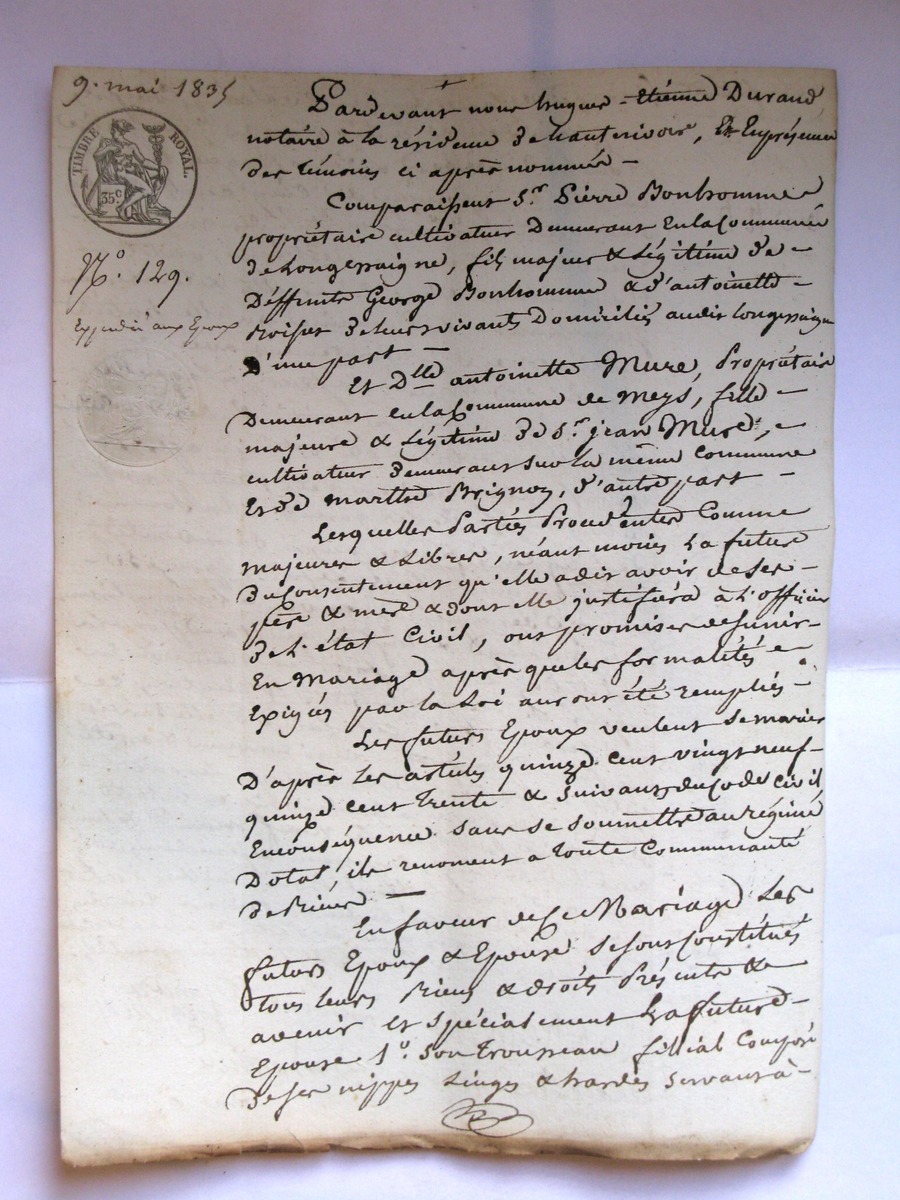 9. mai 1835
TIMBRE ROYAL.
35c
No. 129.
Expédié aux Epoux
Pardevant nous hugues-Etienne Durand
notaire à la résidence de hauterivoire, Et En présence
des témoins ci après nommés –
Comparaissent Sr. Pierre Bonhomme
propriétaire cultivateur Demeurant En la Commune
de Longessaigne, fils majeur & Légitime de –
Deffunts George Bonhomme & d'antoinette –
de leur vivants Domiciliés audit longessaigne
D'une part —
Et Dlle antoinette Mure, Propriétaire
Demeurant en la Commune de Meys, fille –
majeure & Légitime de Sr. jean Mure,
cultivateur demeurant sur la même Commune
Et de marthe Brignon, d'autre part –
Lesquelles Parties Procédentes Comme
majeures & Libres, néant moins La future
du Consentement qu'elle a dit avoir de ses –
père & mere & dont elle justifiéra à L'officier
de L'état Civil, ont promis de s'unir –
En Mariage après que les formalités
Exigées par la Loi auront été remplies –
Les futurs Epoux veulent se marier
D'après Les articles quinze cent vingt neuf –
quinze cent trente & suivants du Code Civil
En conséquence sans se soumettre au régime
Dotal, ils renoncent a toute Communauté
de Biens —
En faveur de ce Mariage Les
futurs Epoux & Epouse se sont Constitués
tous leurs Biens & droits Présents &
avenir Et spécialement La future –
Epouse 1o. Son trousseau filial Composé
de ses nippes Linges & hardes servant à –